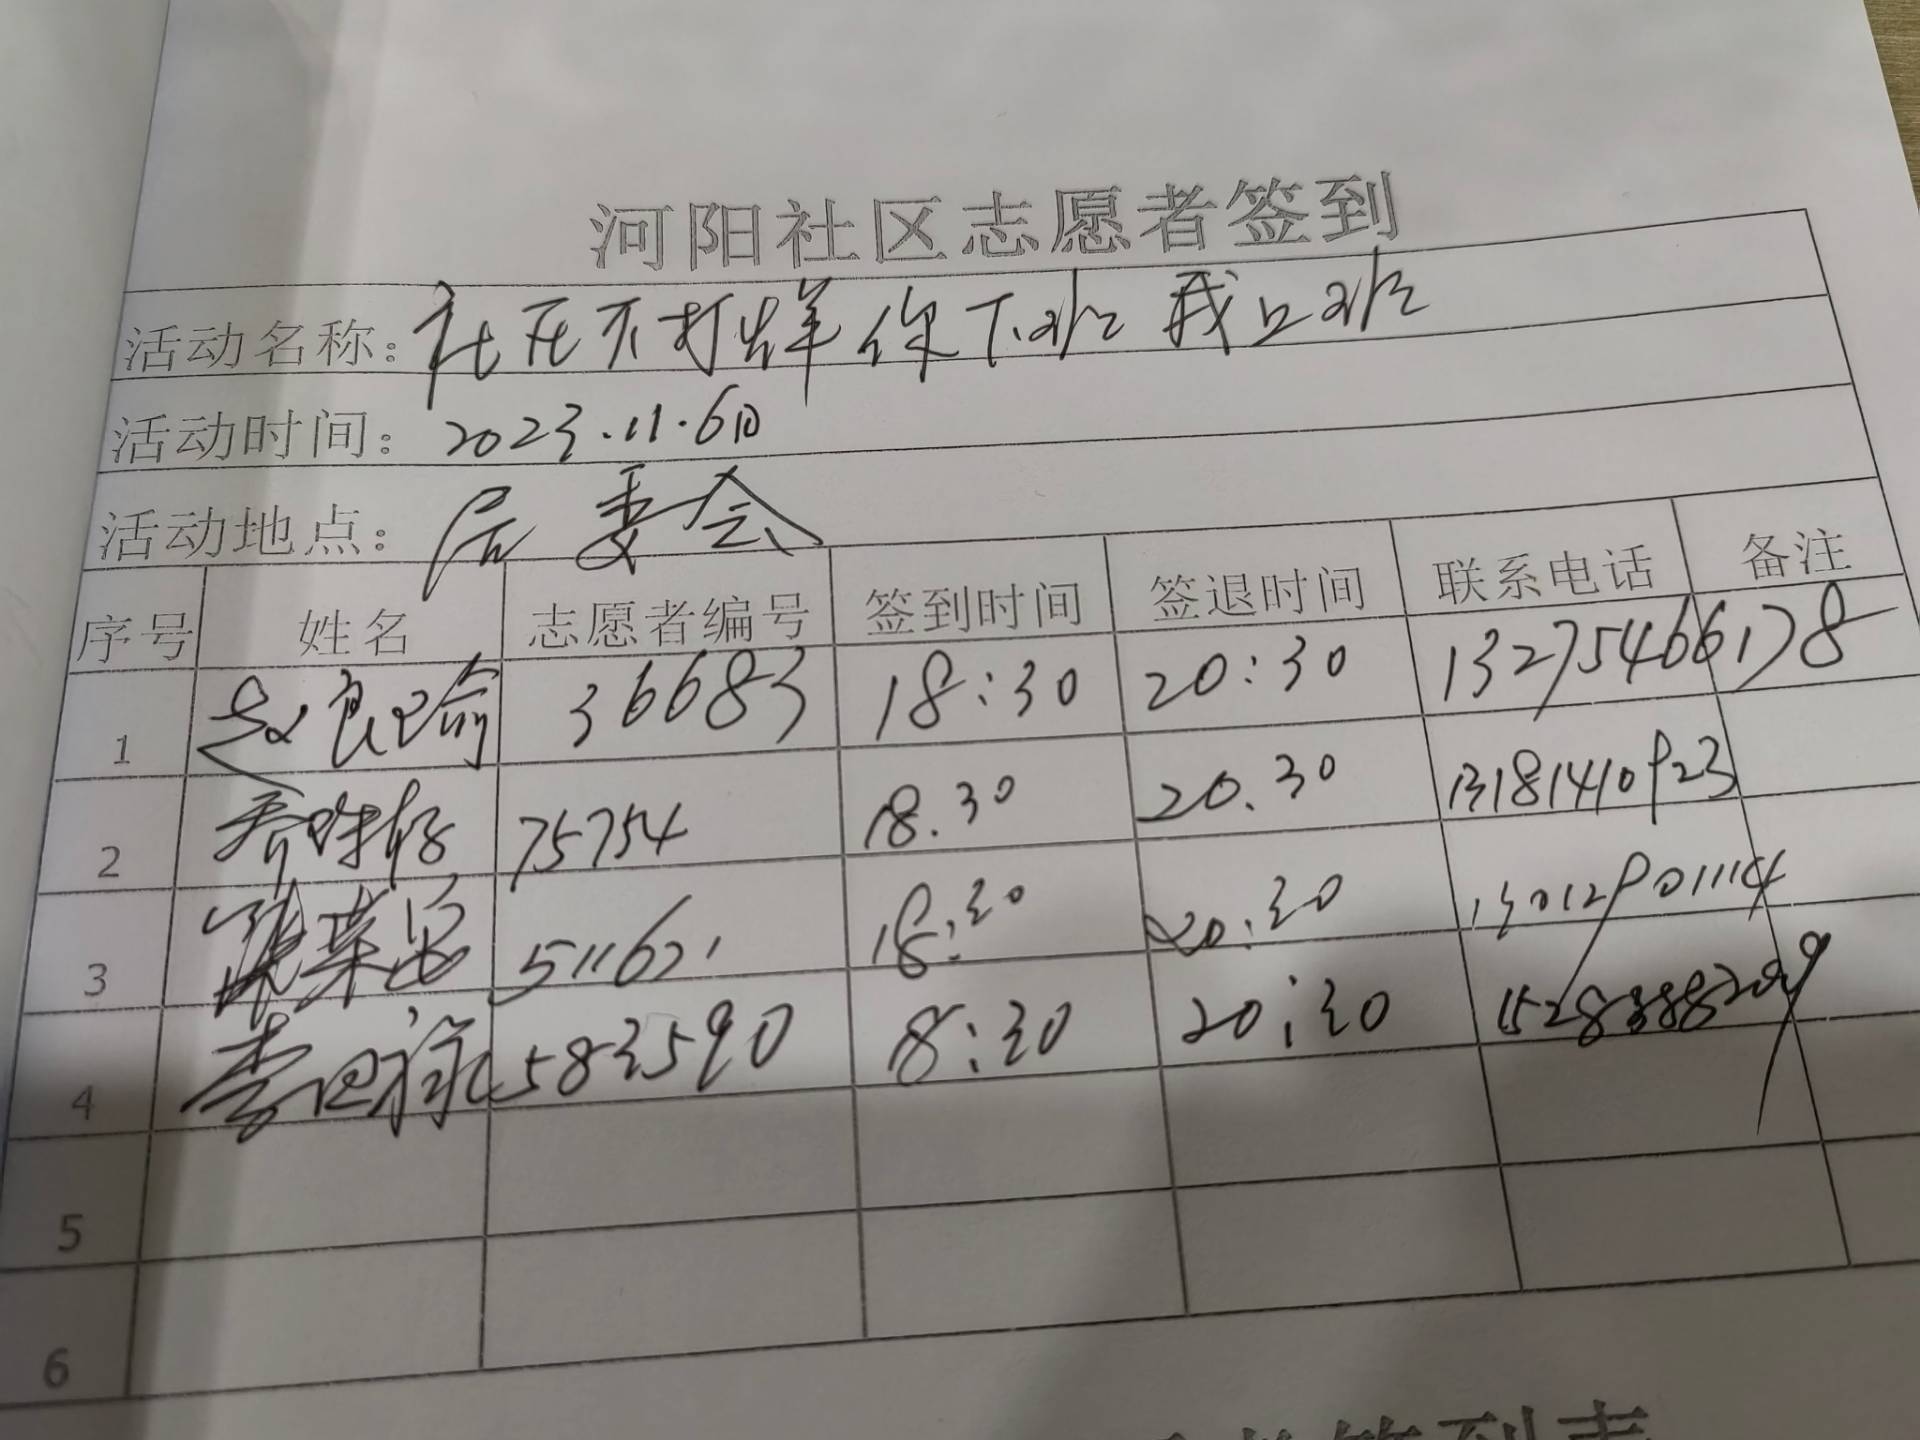 河阳社区志愿者签到
活动名称：社区不打烊 你下班我上班
活动时间：2023.11.6日
活动地点：居委会
序号 姓名 志愿者编号 签到时间 签退时间 联系电话 备注
1 36683 18:30 20:30 13275466178
2 75754 18.30 20.30 13181410923
3 511621 18:30 20:30 13012901114
4 583590 18:30 20:30
5
6